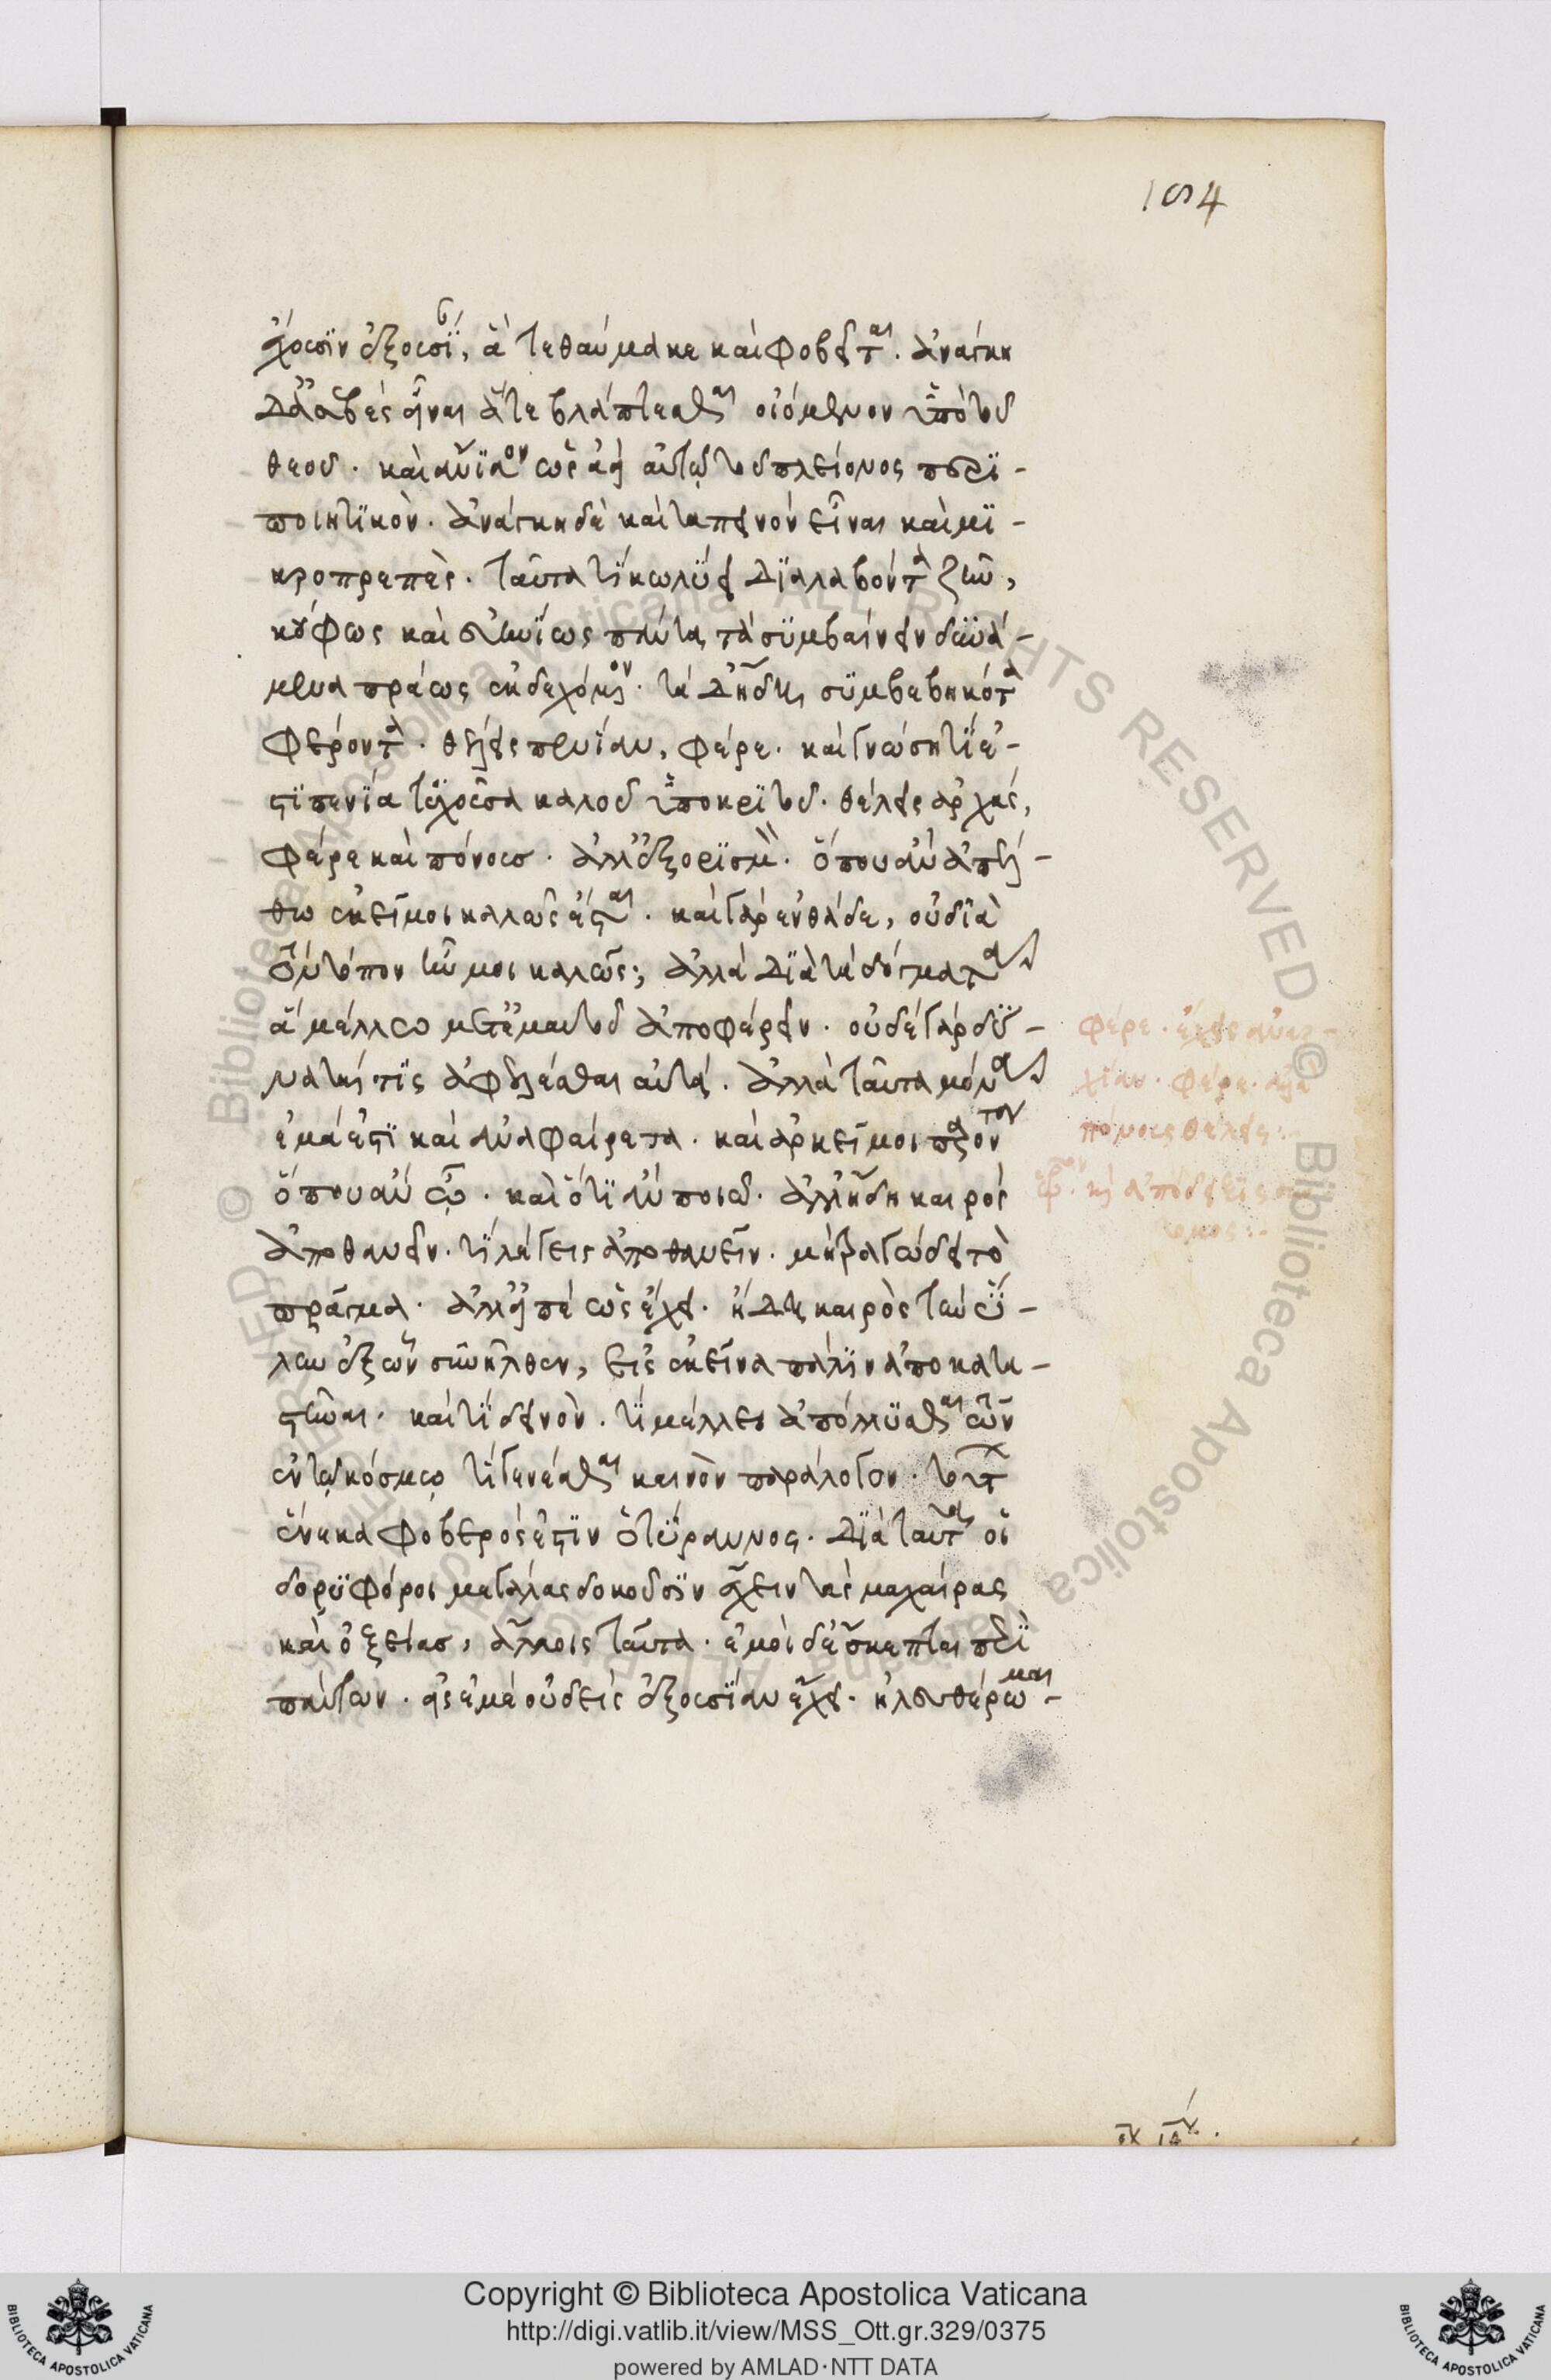 154
ἔχουσιν ἐξουσί, ἃ τεθαύμακε καὶ φοβεῖται. ἀνάγκη
δ' ἀσεβὲς εἶναι ἅτε βλάπτεσθαι οἰόμενον ὑπὸ τοῦ
θεοῦ. καὶ ἄνισον ὡς ἀεὶ αὐτῷ τοῦ πλείονος περι-
ποιητικὸν. ἀνάγκη δὲ καὶ ταπεινὸν εἶναι καὶ μι-
κροπρεπὲς. ταῦτα τί κωλύει διαλαβόντα ζῆν,
κούφως καὶ εὐηνίως πάντα τὰ συμβαίνειν δυνά-
μενα πράως ἐκδεχόμενον. τὰ δ' ἤδη συμβεβηκότα
φέροντα. θέλεις πενίαν, φέρε. καὶ γνώσῃ τί ἐ-
στι πενία τυχοῦσα καλοῦ ὑποκριτοῦ. θέλεις ἀρχάς,
φέρε καὶ πόνους. ἀλλ' ἐξορισμὸν. ὅπου ἂν ἀπέλ-
θω ἐκεῖ μοι καλῶς ἔσται. καὶ γὰρ ἐνθάδε, οὐ διὰ
τὸν τόπον ἦν μοι καλῶς; ἀλλὰ διὰ τὰ δόγματα
ἃ μέλλω μετ' ἐμαυτοῦ ἀποφέρειν. οὐδὲ γὰρ δύ-
ναταί τις ἀφελέσθαι αὐτά. ἀλλὰ ταῦτα μόνα
ἐμά ἐστι καὶ ἀναφαίρετα. καὶ ἀρκεῖ μοι
ὅπου ἂν ὦ. καὶ ὅτι ἂν ποιῶ. ἀλλ' ἤδη καιρὸς
ἀποθανεῖν. τί λέγεις ἀποθανεῖν. μὴ τραγώδει τὸ
πρᾶγμα. ἀλλ' εἰπὲ ὡς ἔχει. ἤδη καιρὸς τὴν ὕ-
λην ἐξ ὧν συνῆλθεν, εἰς ἐκεῖνα πάλιν ἀποκατα-
στῆναι. καὶ τί δεινὸν. τί μέλλει ἀπόλλυσθαι τῶν
ἐν τῷ κόσμῳ τί γενέσθαι καινὸν παράλογον. τούτων
ἕνεκα φοβερός ἐστιν ὁ τύραννος. διὰ ταῦτα οἱ
δορυφόροι μεγάλας δοκοῦσιν ἔχειν τὰς μαχαίρας
καὶ ὀξείας, ἄλλοις ταῦτα. ἐμοὶ δὲ ἔσκεπται περὶ
πάντων. εἰς ἐμὲ οὐδεὶς ἐξουσίαν ἔχει. ἠλευθέρωμαι
φέρε. ἔχεις
φέρε. ἀλλὰ
πόνους θέλεις
Copyright © Biblioteca Apostolica Vaticana
http://digi.vatlib.it/view/MSS_Ott.gr.329/0375
powered by AMLAD·NTT DATA